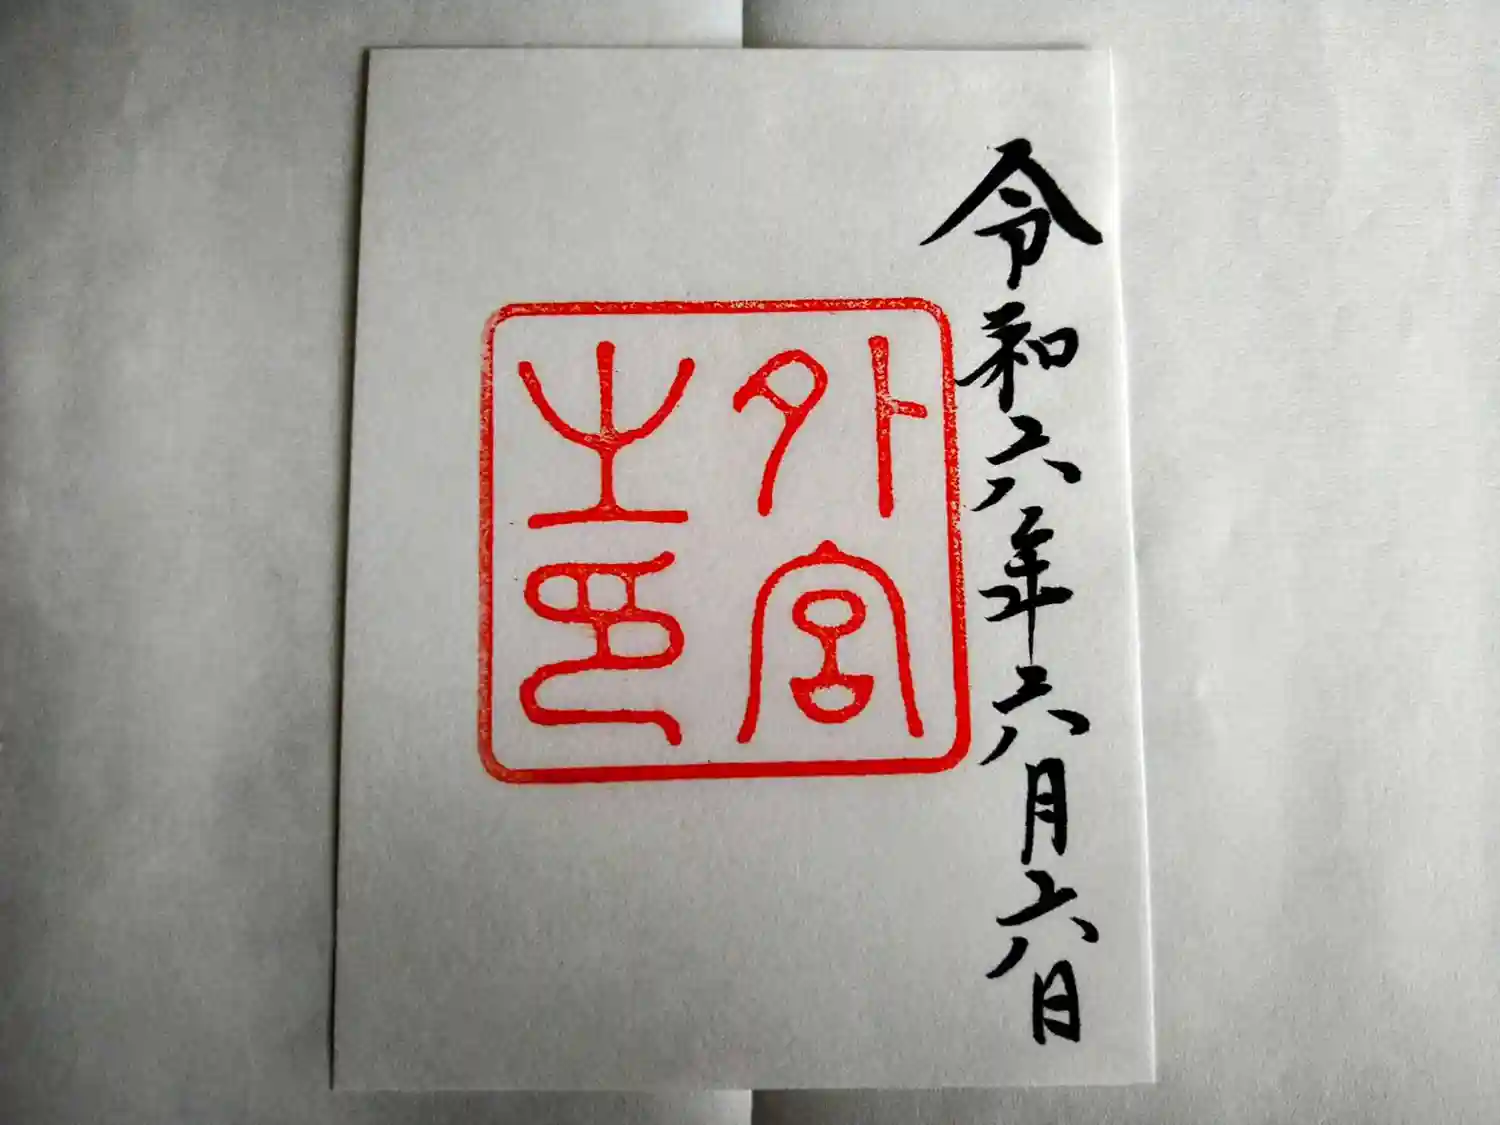 令和六年六月六日
外宮
之印